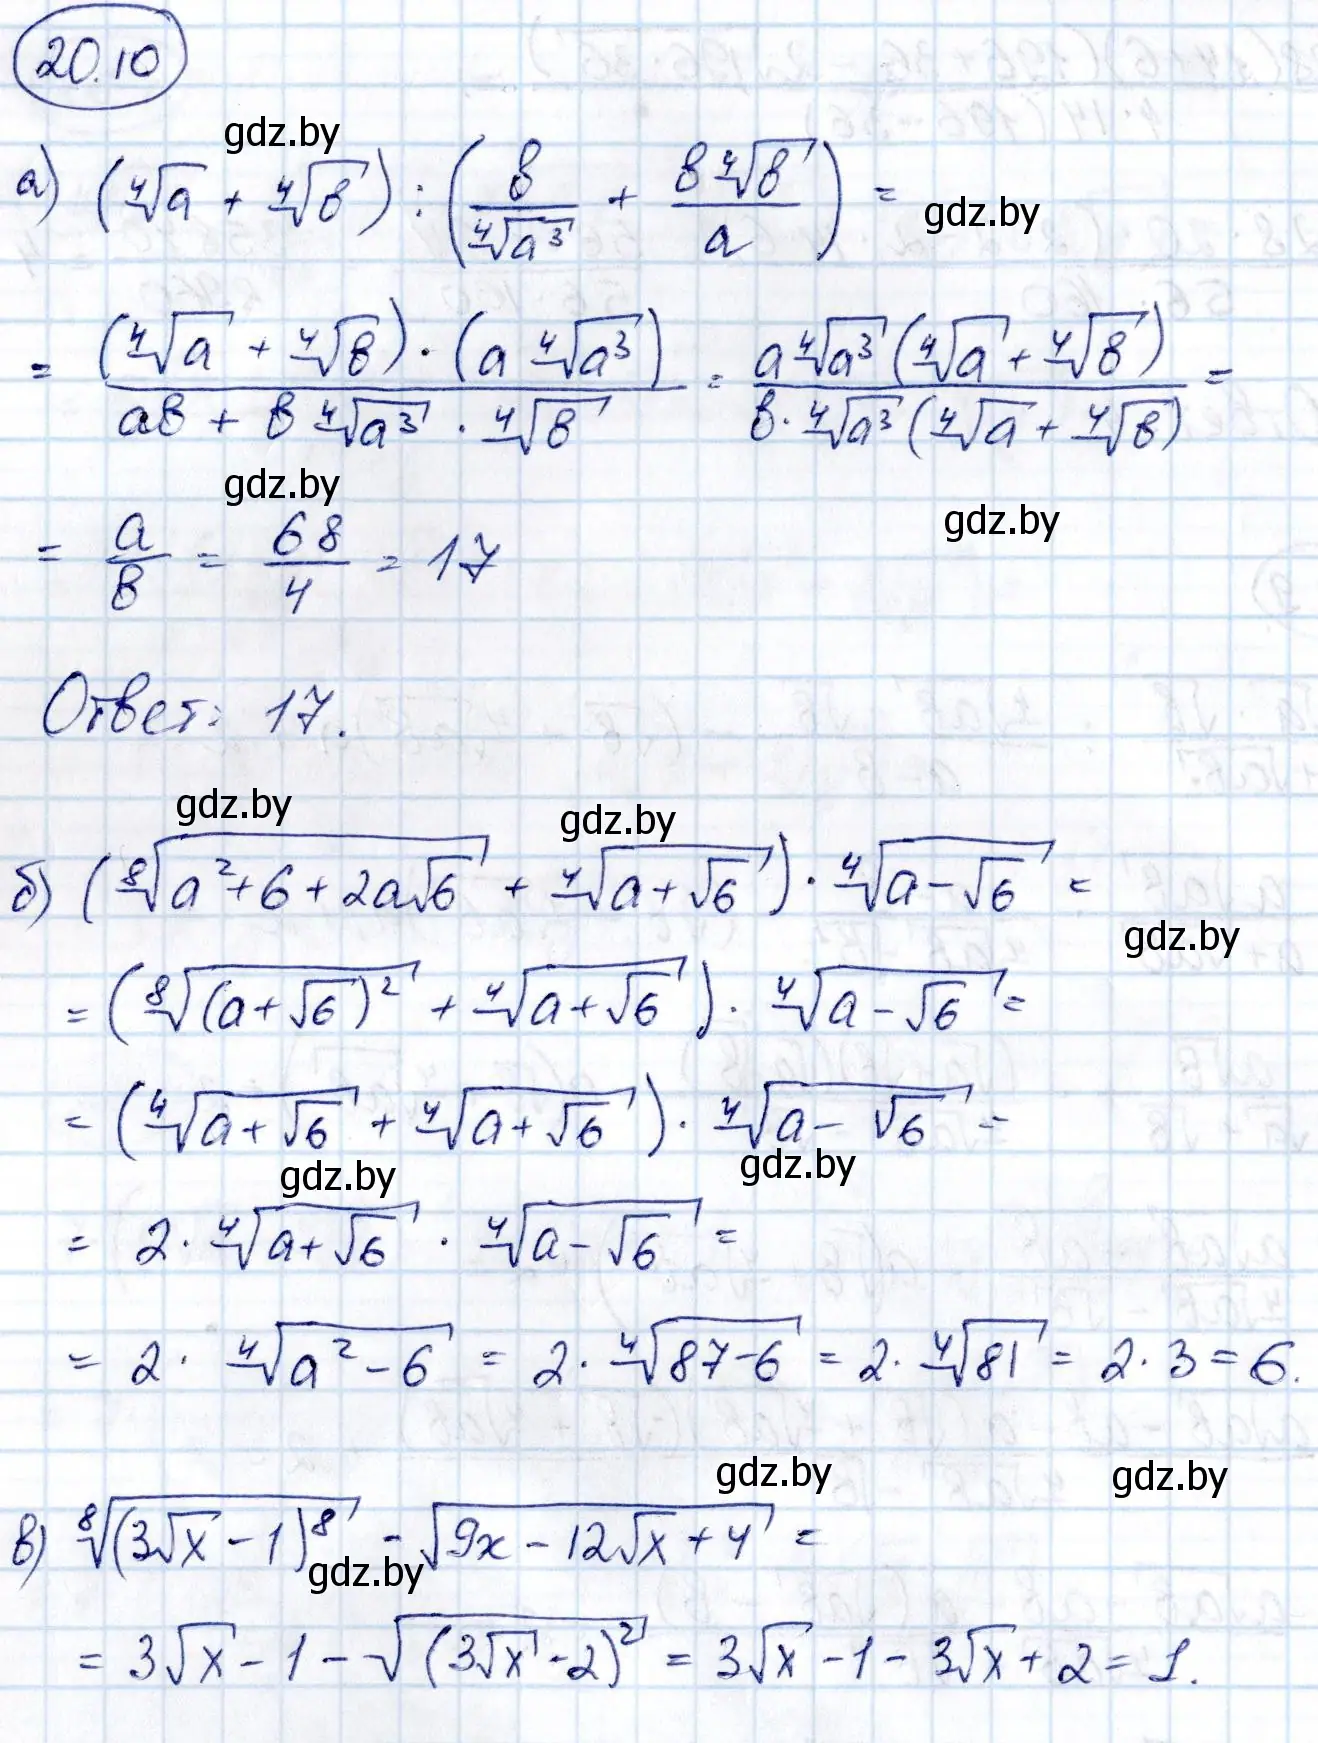 20.10
gdz.by
а) (⁴√a + ⁴√b) : (b/⁴√a³ + b⁴√b/a) =
gdz.by
= (⁴√a + ⁴√b)·(a ⁴√a³)/(ab + b ⁴√a³ · ⁴√b) = a ⁴√a³(⁴√a + ⁴√b)/(b·⁴√a³(⁴√a + ⁴√b)) =
gdz.by
gdz.by
= a/b = 68/4 = 17
Ответ: 17.
gdz.by
gdz.by
б) (⁸√(a²+6+2a√6) + ⁴√(a+√6))·⁴√(a-√6) =
gdz.by
= (⁸√((a+√6)²) + ⁴√(a+√6))· ⁴√(a-√6) =
= (⁴√(a+√6) + ⁴√(a+√6))· ⁴√(a-√6) =
gdz.by
gdz.by
= 2· ⁴√(a+√6) · ⁴√(a-√6) =
= 2· ⁴√(a²-6) = 2·⁴√(87-6) = 2·⁴√81 = 2·3=6.
gdz.by
gdz.by
в) ⁸√((3√x-1)⁸) - √(9x-12√x+4) =
gdz.by
= 3√x-1-√((3√x-2)²) = 3√x-1-3√x+2=1.